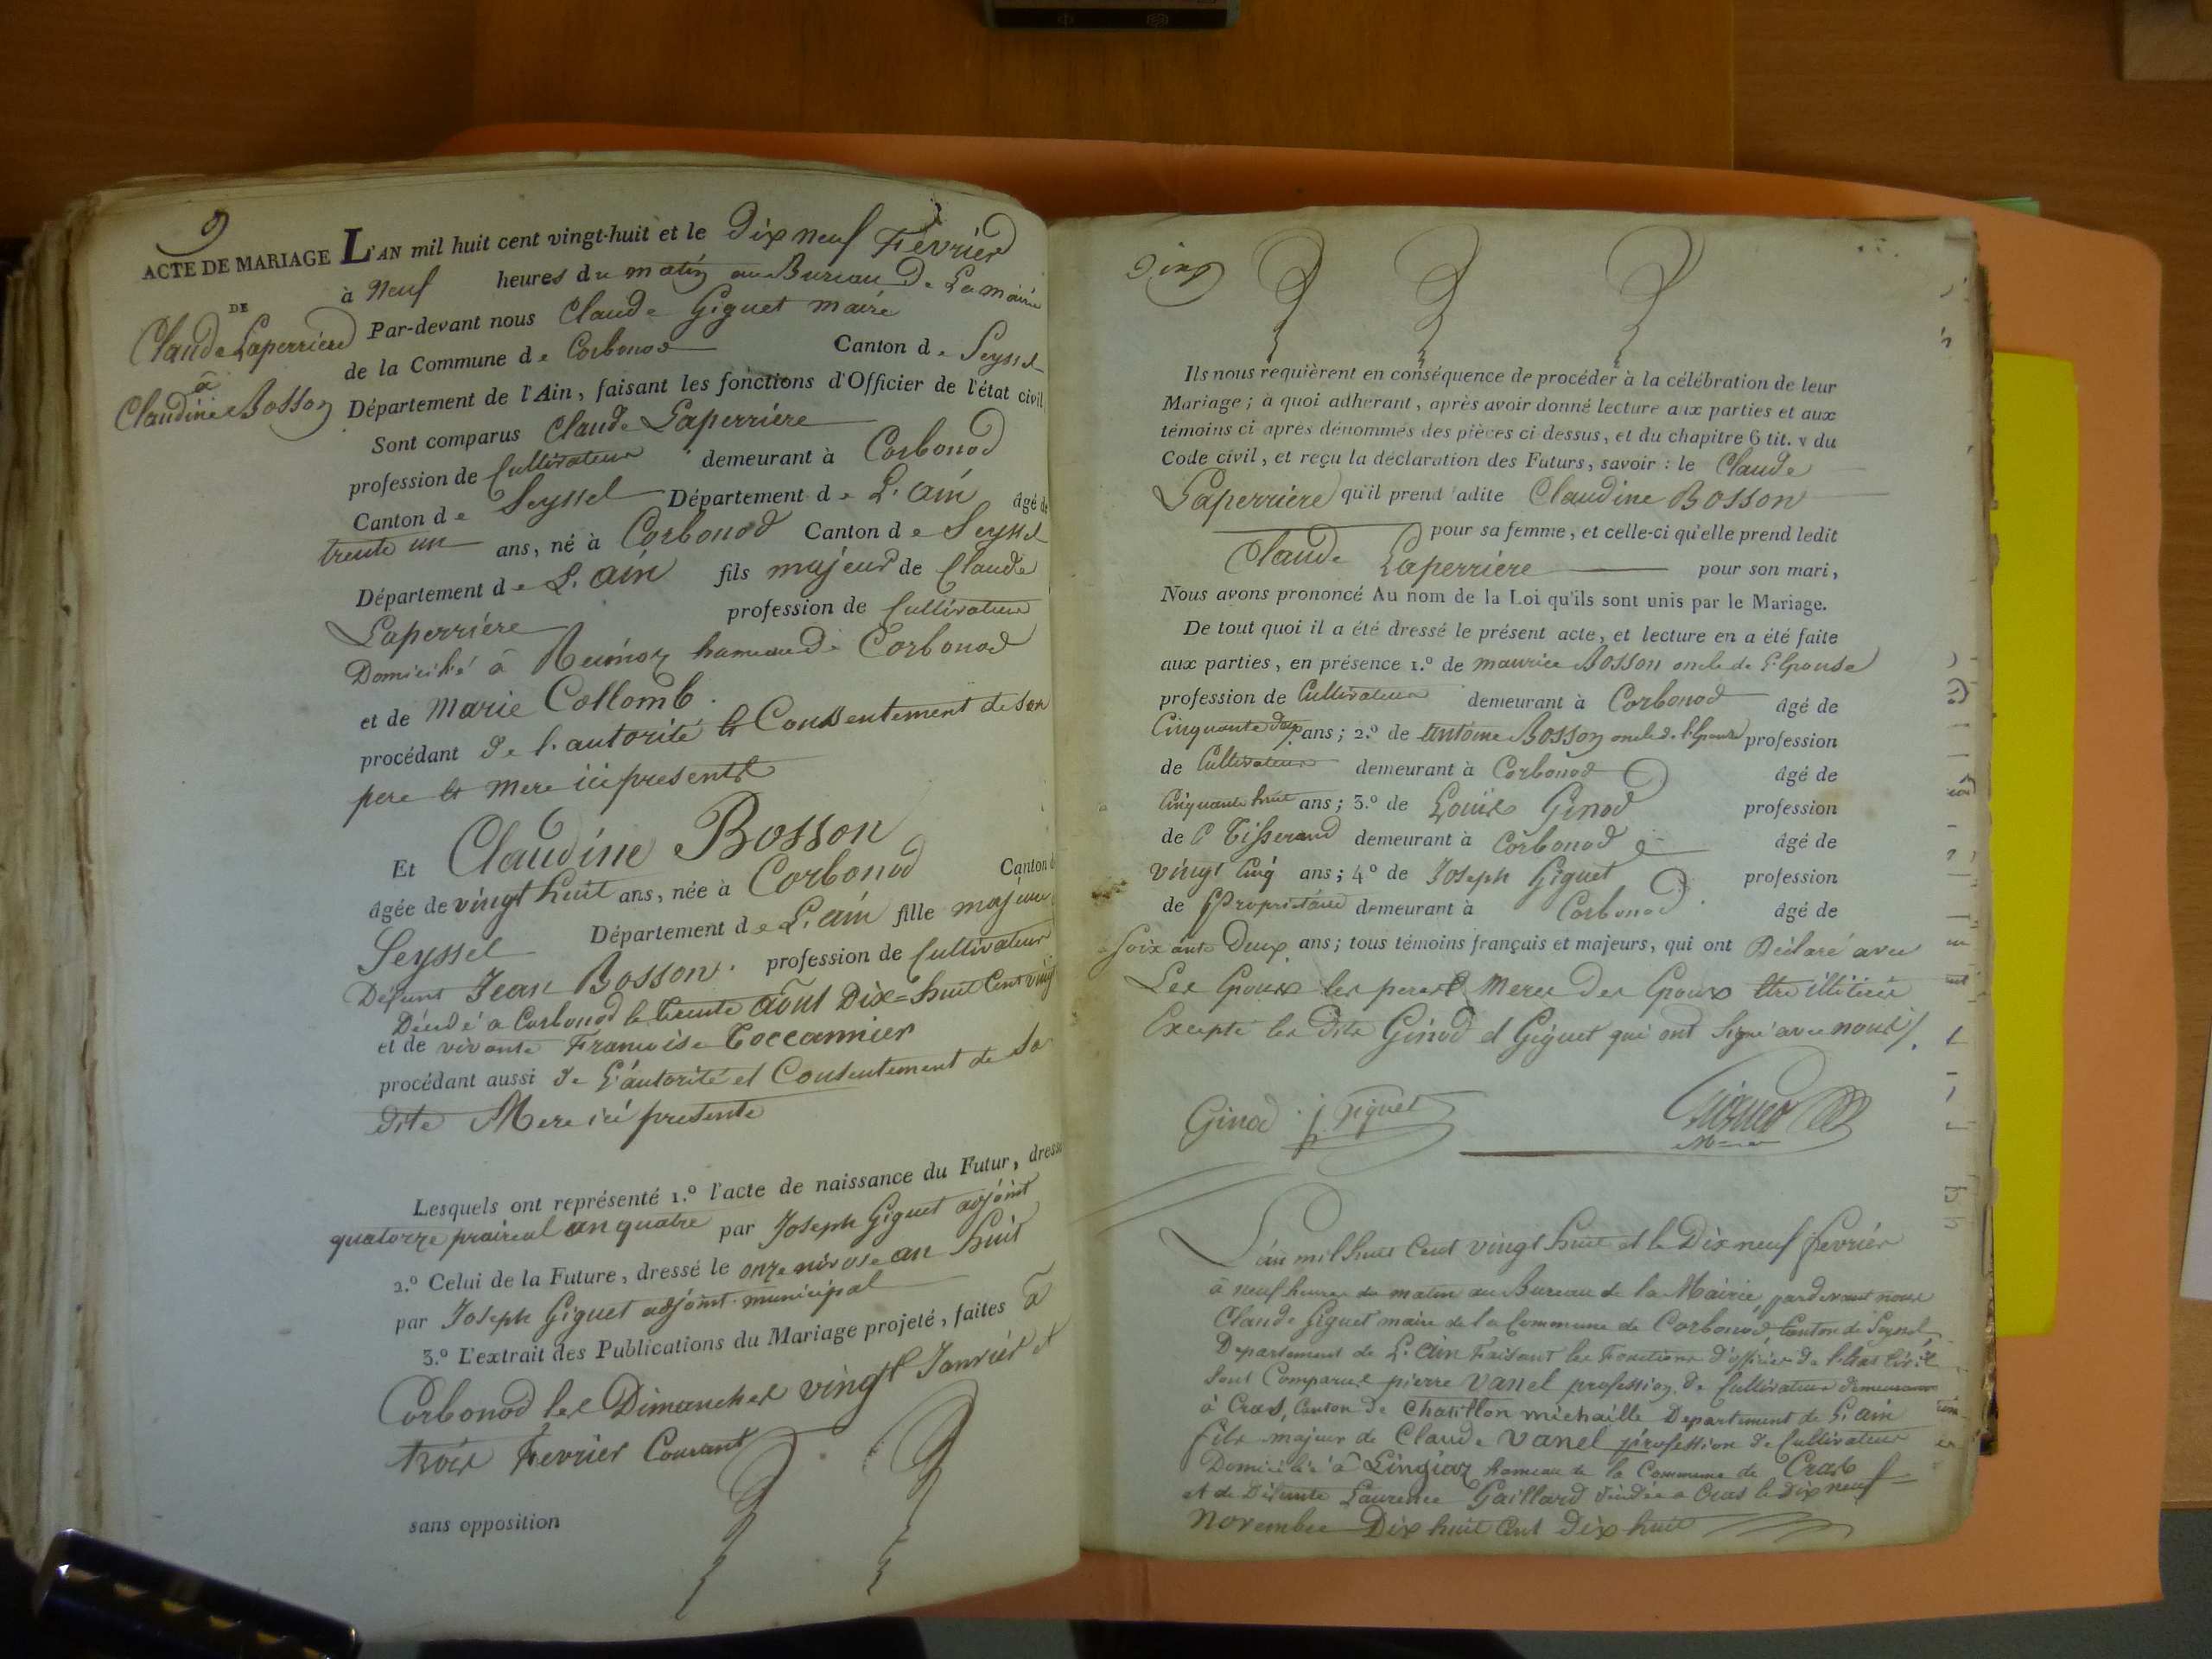 9
ACTE DE MARIAGE
DE
Claude Laperriere
à
Claudine Bosson
L'AN mil huit cent vingt-huit et le Dix neuf Fevrier
à Neuf heures du matin au Bureau De La mairie
Par-devant nous Claude Giguet maire
de la Commune de Corbonod Canton de Seyssel
Département de l'Ain, faisant les fonctions d'Officier de l'état civil
Sont comparus Claude Laperriere
profession de Cultivateur demeurant à Corbonod
Canton de Seyssel Département de L'ain âgé de
trente un ans, né à Corbonod Canton de Seyssel
Département de L'ain fils majeur de Claude
Laperriere profession de Cultivateur
Domicilié à hameau de Corbonod
et de Marie Collomb.
procédant de l'autorité et Consentement de son
pere et mere ici presents
Et Claudine Bosson
âgée de vingt huit ans, née à Corbonod Canton d
Seyssel Département de L'ain fille majeure
Defunt Jean Bosson. profession de Cultivateur
Décédé a Corbonod le trente août Dix=huit Cent vingt
et de vivante Francoise Coccannier
procédant aussi de L'autorité et Consentement de sa
dite Mere ici presente
Lesquels ont représenté 1.º l'acte de naissance du Futur, dressé
quatorze praireal an quatre par Joseph Giguet adjoint
2.º Celui de la Future, dressé le onze nivose an huit
par Joseph Giguet adjoint municipal
3.º L'extrait des Publications du Mariage projeté, faites à
Corbonod les Dimanches vingt Janvier et
trois Fevrier Courant
sans opposition
Ils nous requièrent en conséquence de procéder à la célébration de leur
Mariage; à quoi adhérant, après avoir donné lecture aux parties et aux
témoins ci après dénommés des pièces ci dessus, et du chapitre 6 tit. v du
Code civil, et reçu la déclaration des Futurs, savoir: le Claude
Laperriere qu'il prend ladite Claudine Bosson
pour sa femme, et celle-ci qu'elle prend ledit
Claude Laperriere pour son mari,
Nous avons prononcé Au nom de la Loi qu'ils sont unis par le Mariage.
De tout quoi il a été dressé le présent acte, et lecture en a été faite
aux parties, en présence 1.º de maurice Bosson oncle de L'Epouse
profession de Cultivateur demeurant à Corbonod âgé de
Cinquante deux ans; 2.º de Antoine Bosson oncle de L'Epouse profession
de Cultivateur demeurant à Corbonod âgé de
Cinquante huit ans; 3.º de Louis Ginod profession
de Tisserand demeurant à Corbonod âgé de
vingt Cinq ans; 4º de Joseph Giguet profession
de Propriétaire demeurant à Corbonod âgé de
Soixante Deux ans; tous témoins français et majeurs, qui ont Déclaré avec
Les Epoux les peres et Meres des Epoux être illiterés
Excepté les dits Ginod et Giguet qui ont Signé avec nous /.
Ginod j Giguet Giguet
L'an mil huit Cent vingt huit et le Dix neuf fevrier
à neuf heures du matin au Bureau de la Mairie pardevant nous
Claude Giguet maire de la Commune de Corbonod Canton de Seyssel
Departement de L'ain Faisant les Fonctions d'officier de l'état Civil
Sont Comparus pierre Vanel profession de Cultivateur demeurant
à Cras, Canton de Chatillon michaille Departement de L'ain
fils majeur de Claude Vanel profession de Cultivateur
Domicilié à Lingiaz hameau de la Commune de Cras
et de Défunte Laurence Gaillard décédée a Cras le dix neuf
Novembre Dix huit Cent Dix huit